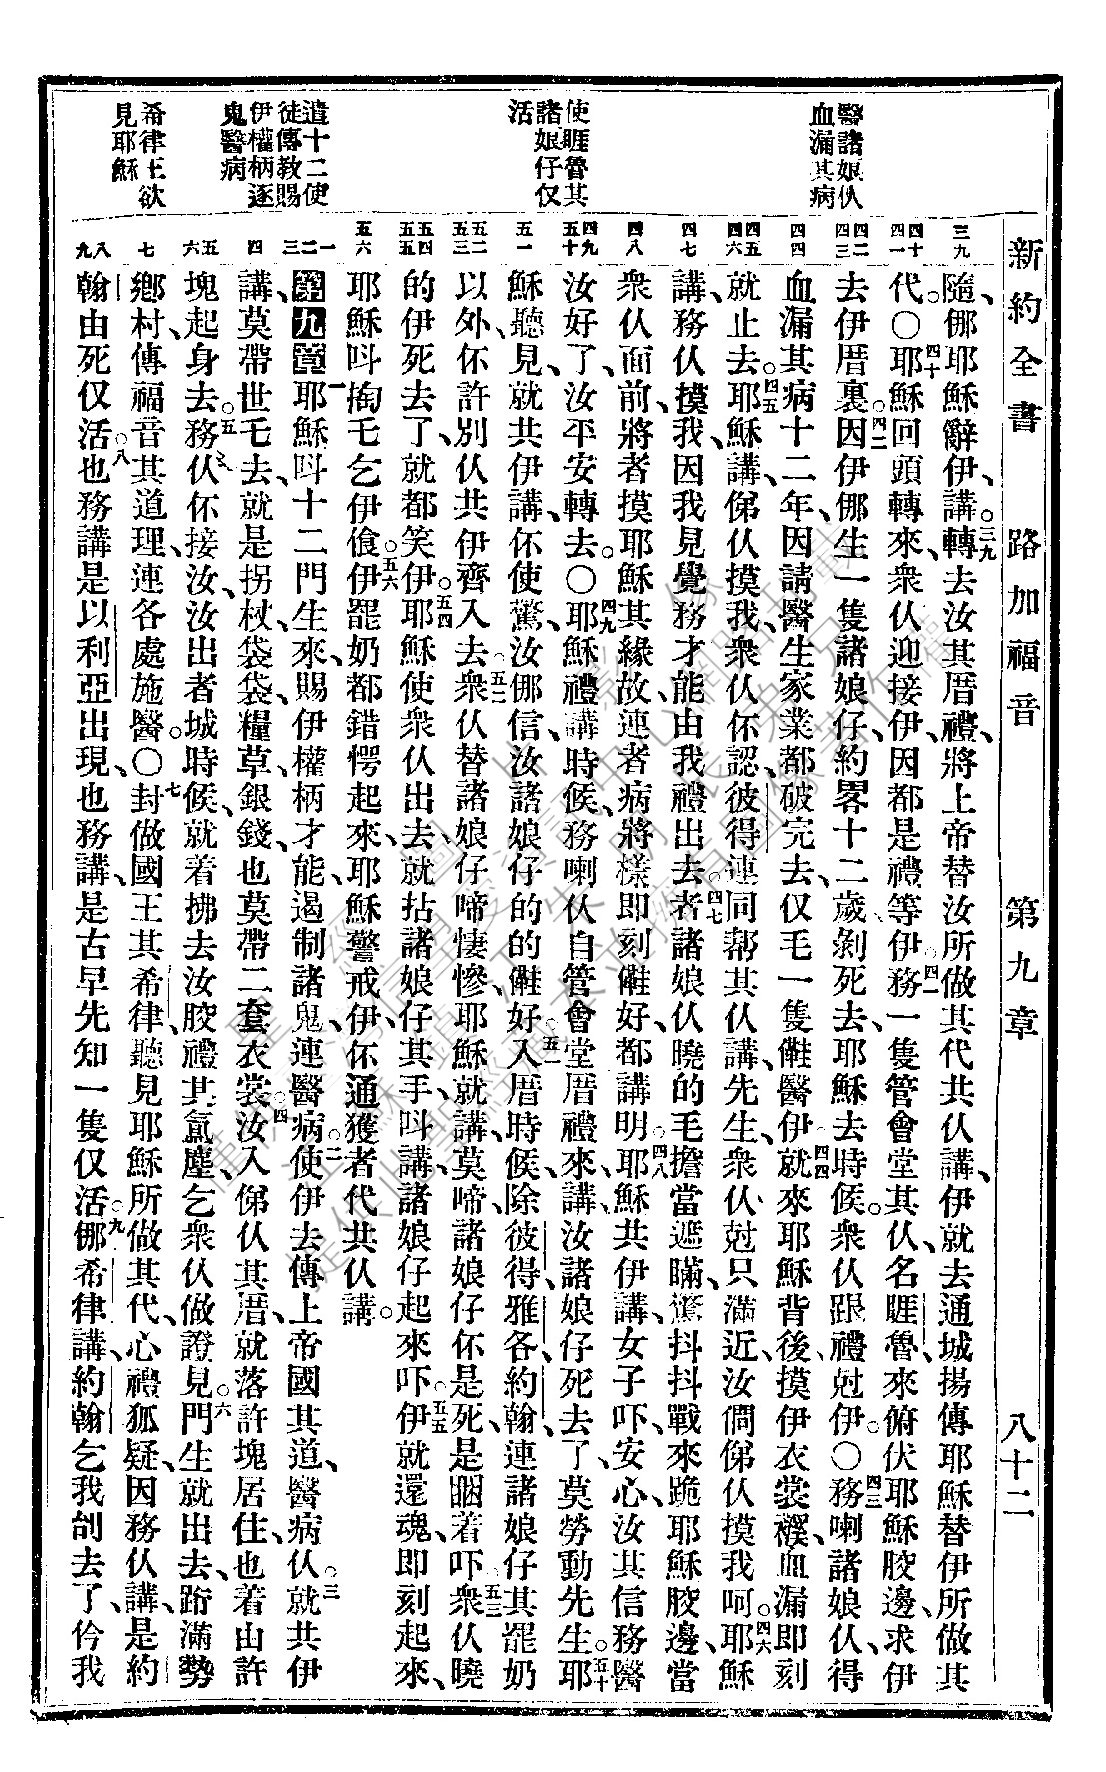 新約全書 路加福音 第九章 八十二
醫諸娘仈
血漏其病
使睚魯其
諸娘仔仅
活
遣十二使
徒傳教賜
伊權柄逐
鬼醫病
希律王欲
見耶穌
三九
四十
四一
四二
四三
四四
四五
四六
四七
四八
四九
五十
五一
五二
五三
五四
五五
五六
一
二
三
四
五
六
七
八
九
隨、㑚耶穌辭伊講。三九轉去汝其厝禮、將上帝替汝所做其代共仈講、伊就去通城揚傳耶穌替伊所做其
代。〇四十耶穌回頭轉來、衆仈迎接伊、因都是禮等伊。四一務一隻管會堂其仈名睚魯來俯伏耶穌骹邊、求伊
去伊厝裏。四二因伊㑚生一隻諸娘仔、約畧十二歲、剝死去、耶穌去時候。衆仈跟禮尅伊。〇四三務喇諸娘仈、得
血漏其病十二年、因請醫生家業都破完去、仅毛一隻儺醫伊。四四就來耶穌背後、摸伊衣裳襏、血漏即刻
就止去。四五耶穌講、俤仈摸我、衆仈伓認、彼得連同幇其仈講、先生、衆仈尅只滿近、汝僩俤仈摸我呵。四六耶穌
講、務仈摸我、因我見覺務才能由我禮出去。四七者諸娘仈曉的毛擔當遮瞞、驚抖抖戰來跪耶穌骹邊、當
衆仈面前、將者摸耶穌其緣故、連者病將樣即刻儺好、都講明。四八耶穌共伊講、女子吓、安心、汝其信務醫
汝好了、汝平安轉去。〇四九耶穌禮講時候、務喇仈自管會堂厝禮來、講、汝諸娘仔死去了、莫勞動先生。五十耶
穌聽見就共伊講、伓使驚、汝㑚信、汝諸娘仔的的儺好。五一入厝時候、除彼得、雅各、約翰、連諸娘仔其罷奶
以外、伓許別仈共伊齊入去。五二衆仈替諸娘仔啼悽慘、耶穌就講、莫啼、諸娘仔伓是死、是睏着吓。五三衆仈曉
的伊死去了、就都笑伊。五四耶穌使衆仈出去、就拈諸娘仔其手、呌講、諸娘仔起來吓。五五伊就還魂、即刻起來、
耶穌呌掏乇乞伊飡。五六伊罷奶都錯愕起來、耶穌警戒伊、伓通獲者代共仈講。
第九章 一耶穌呌十二門生來、賜伊權柄才能、遏制諸鬼、連醫病。二使伊去傳上帝國其道、醫病仈。三就共伊
講、莫帶世乇去、就是拐杖、袋袋、糧草、銀錢、也莫帶二套衣裳。四汝入俤仈其厝、就落許塊居住、也着由許
塊起身去。五務仈伓接汝、汝出者城時候、就着拂去汝骹禮其氤塵、乞衆仈做證見。六門生就出去、跡滿勢
鄉村、傳福音其道理、連各處施醫。〇七封做國王其希律、聽見耶穌所做其代、心禮狐疑、因務仈講、是約
翰由死仅活。八也務講、是以利亞出現、也務講、是古早先知一隻仅活。九㑚希律講、約翰乞我刣去了、仱我